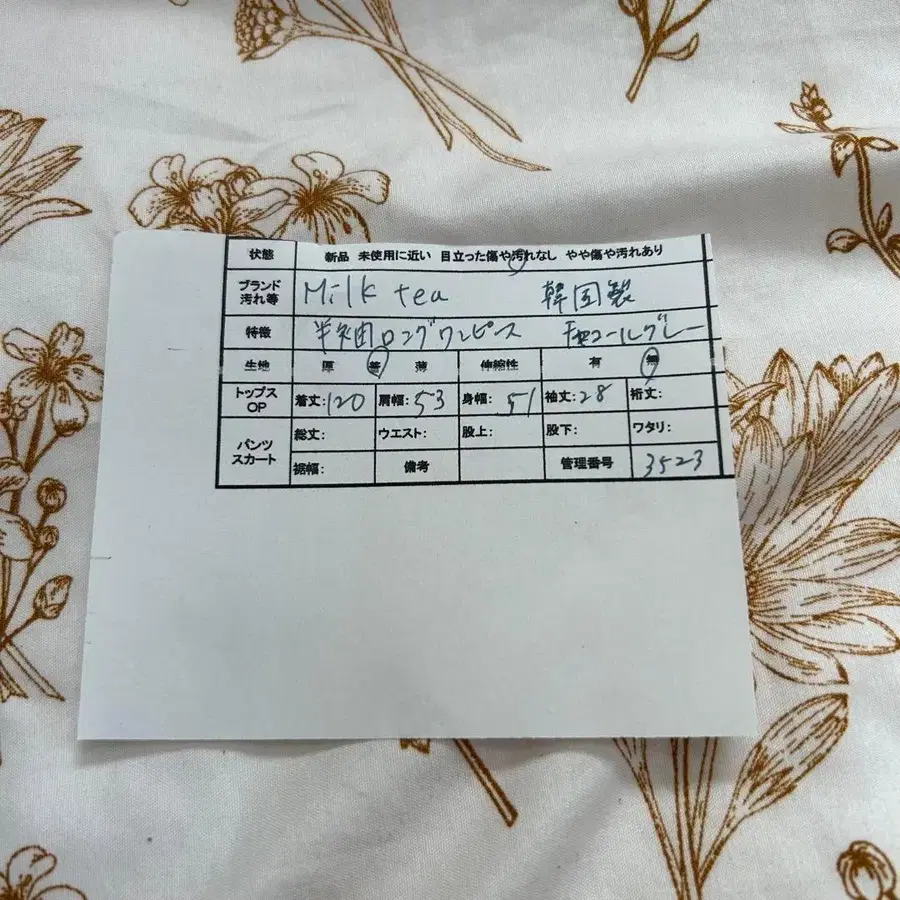 状態 新品 未使用に近い 目立った傷や汚れなし やや傷や汚れあり
ブランド 汚れ等 Milk tea 韓国製
特徴 半袖ロングワンピース チャコールグレー
生地 厚 普 薄 伸縮性 有 無
トップス OP 着丈:120 肩幅:53 身幅:51 袖丈:28 裄丈:
パンツ スカート 総丈: ウエスト: 股上: 股下: ワタリ:
裾幅: 備考 管理番号 3523